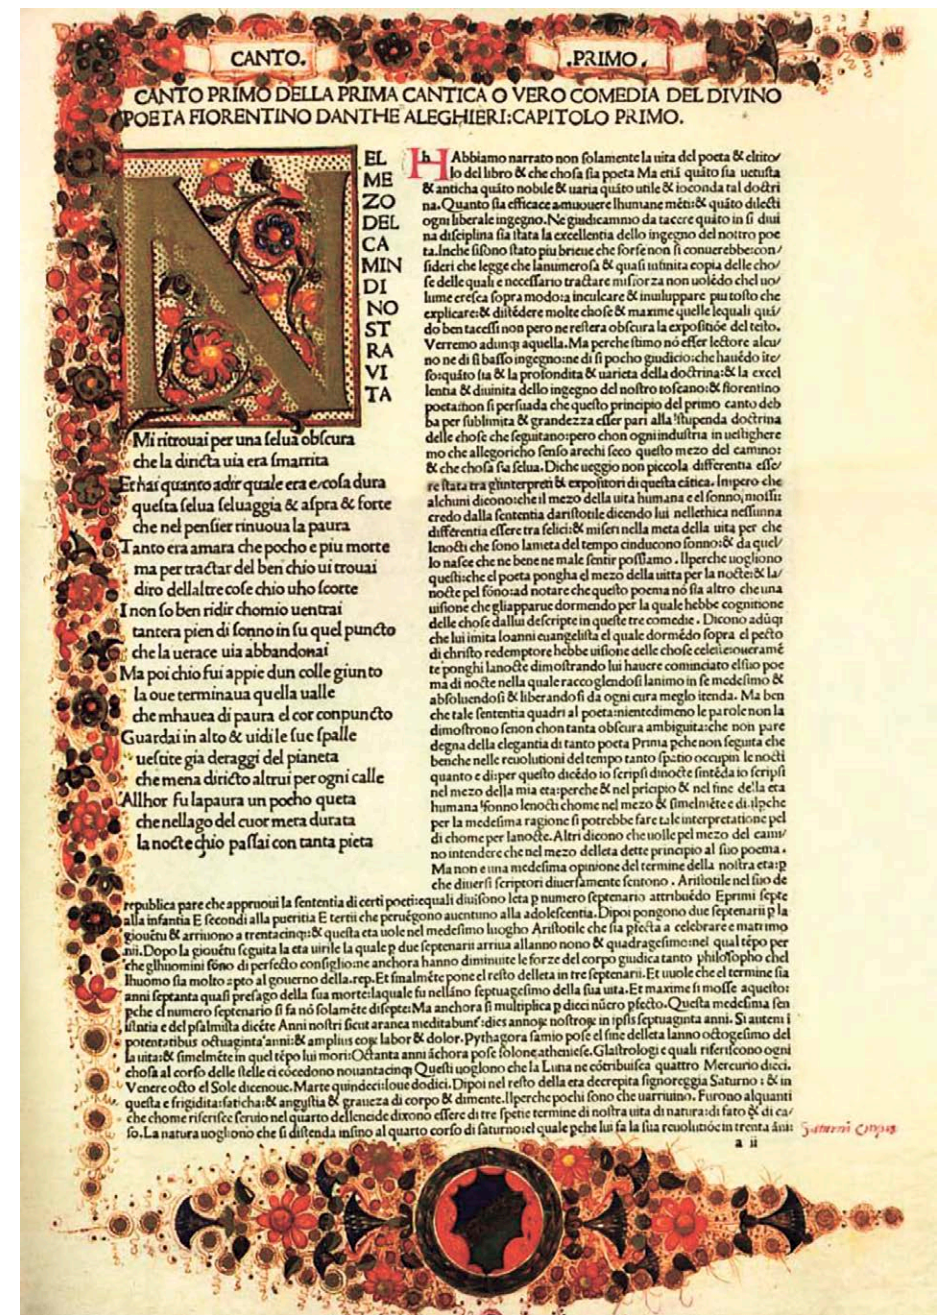 CANTO. .PRIMO.
CANTO PRIMO DELLA PRIMA CANTICA O VERO COMEDIA DEL DIVINO
POETA FIORENTINO DANTHE ALEGHIERI:CAPITOLO PRIMO.
N EL
ME
ZO
DEL
CA
MIN
DI
NO
ST
RA
VI
TA
Mi ritrouai per una ſelua obſcura
che la diricta uia era ſmarrita
Et hai quanto adir quale era e coſa dura
queſta ſelua ſeluaggia & aſpra & forte
che nel penſier rinuoua la paura
Tanto era amara che pocho e piu morte
ma per tractar del ben chio ui trouai
diro dellaltre coſe chio uho ſcorte
I non ſo ben ridir chomio uentrai
tantera pien di ſonno in ſu quel puncto
che la uerace uia abbandonai
Ma poi chio fui appie dun colle giunto
la oue terminaua quella ualle
che mhauea di paura el cor conpuncto
Guardai in alto & uidi le ſue ſpalle
ueſtite gia deraggi del pianeta
che mena diricto altrui per ogni calle
Allhor fu lapaura un pocho queta
che nellago del cuor mera durata
la nocte chio paſſai con tanta pieta
H Abbiamo narrato non ſolamente la uita del poeta & eltito/
lo del libro & che choſa ſia poeta Ma etiã quãto ſia uetuſta
& anticha quãto nobile & uaria quãto utile & ioconda tal doctri
na. Quanto ſia efficace amuouere lhumane mẽti:& quãto dilecti
ogni liberale ingegno. Ne giudicammo da tacere quãto in ſi diui
na diſciplina ſia ſtata la excellentia dello ingegno del noſtro poe
ta. Inche ſiſono ſtato piu brieue che forſe non ſi conuerebbe:con/
ſideri che legge che lanumeroſa & quaſi infinita copia delle cho/
ſe delle quali e neceſſario tractare miſforza non uolẽdo chel uo/
lume creſca ſopra modo:a inculcare & inuiluppare piu toſto che
explicare:& diſtẽdere molte choſe & maxime quelle lequali quã/
do ben taceſſi non pero ne reſtera obſcura la expoſitiõe del teſto.
Verremo adunq aquella. Ma perche ſtimo nõ eſſer lectore alcu/
no ne di ſi baſſo ingegno:ne di ſi pocho giudicio:che hauẽdo ite/
ſo:quãto ſia & la profondita & uarieta della doctrina:& la excel
lentia & diuinita dello ingegno del noſtro toſcano:& fiorentino
poeta:non ſi perſuada che queſto principio del primo canto deb
ba per ſublimita & grandezza eſſer pari alla ſtupenda doctrina
delle choſe che ſeguitano:pero chon ogni induſtria in ueſtighere
mo che allegoricho ſenſo arechi ſeco queſto mezo del camino:
& che choſa ſia ſelua. Diche ueggio non piccola differentia eſſe/
re ſtata tra glinterpreti & expoſitori di queſta cãtica. Impero che
alchuni dicono:che il mezo della uita humana e el ſonno, moſſi:
credo dalla ſententia dariſtotile dicendo lui nellethica neſſunna
differentia eſſere tra felici:& miſeri nella meta della uita per che
lenocti che ſono lameta del tempo cinducono ſonno:& da quel/
lo naſce che ne bene ne male ſentir poſſamo. Ilperche uogliono
queſti:che el poeta pongha el mezo della uitta per la nocte:& la/
nocte pel ſõno:ad notare che queſto poema nõ ſia altro che una
uiſione che gliapparue dormendo per la quale hebbe cognitione
delle choſe dallui deſcripte in queſte tre comedie. Dicono adũq
che lui imita Ioanni euangeliſta el quale dormẽdo ſopra el pecto
di chriſto redemptore hebbe uiſione delle choſe celeſte:oueramẽ
te ponghi lanocte dimoſtrando lui hauere cominciato elſuo poe
ma di nocte nella quale raccoglendoſi lanimo in ſe medeſimo &
abſoluendoſi & liberandoſi da ogni cura meglo itenda. Ma ben
che tale ſententia quadri al poeta:nientedimeno le parole non la
dimoſtrono ſenon chon tanta obſcura ambiguita:che non pare
degna della elegantia di tanto poeta Prima pche non ſeguita che
benche nelle reuolutioni del tempo tanto ſpatio occupin le nocti
quanto e di:per queſto dicẽdo io ſcripſi dinocte ſintẽda io ſcripſi
nel mezo della mia eta:perche & nel pricipio & nel fine della eta
humana ſonno lenocti chome nel mezo & ſimelmẽte e di. ilpche
per la medeſima ragione ſi potrebbe fare tale interpretatione pel
di chome per lanocte. Altri dicono che uolle pel mezo del cami/
no intendere che nel mezo delleta dette principio al ſuo poema.
Ma non e una medeſima opinione del termine della noſtra eta:p
che diuerſi ſcriptori diuerſamente ſentono. Ariſtotile nel ſuo de
republica pare che appruoui la ſententia di certi poeti:equali diuiſono leta p numero ſeptenario attribuẽdo E primi ſepte
alla infantia E ſecondi alla pueritia E tertii che peruẽgono auentuno alla adoleſcentia. Dipoi pongono due ſeptenarii p la
giouẽtu & arriuono a trentacinq:& queſta eta uole nel medeſimo luogho Ariſtotile che ſia pfecta a celebrare e matrimo
nii. Dopo la giouẽtu ſeguita la eta uirile la quale p due ſeptenarii arriua allanno nono & quadrageſimo:nel qual tẽpo per
che glhuomini ſono di perfecto conſiglio:ne anchora hanno diminuite le forze del corpo giudica tanto philoſopho chel
lhuomo ſia molto apto al gouerno della.rep. Et finalmẽte pone el reſto delleta in tre ſeptenarii. Et uuole che el termine ſia
anni ſeptanta quaſi preſago della ſua morte:laquale fu nellãno ſeptuageſimo della ſua uita. Et maxime ſi moſſe aqueſto:
pche el numero ſeptenario ſi fa nõ ſolamẽte diſepte:Ma anchora ſi multiplica p dieci nũero pfecto. Queſta medeſima ſen
tẽtia e del pſalmiſta dicẽte Anni noſtri ſicut aranea meditabunt:dies annoꝝ noſtroꝝ in ipſis ſeptuaginta anni. Si autem i
potentatibus octuaginta anni:& amplius eoꝝ labor & dolor. Pythagora ſamio poſe el fine delleta lanno octogeſimo del
la uita:& ſimelmẽte in quel tẽpo lui mori:Octanta anni ãchora poſe ſolone athenieſe. Glaſtrologi e quali riferiſcono ogni
choſa al corſo delle ſtelle ci cõcedono nouantacinq Queſti uoglono che la Luna ne cõtribuiſca quattro Mercurio dieci.
Venere octo el Sole dicenoue. Marte quindeci:Ioue dodici. Dipoi nel reſto della eta decrepita ſignoreggia Saturno:& in
queſta e frigidita:faticha:& anguſtia & graueza di corpo & dimente. Ilperche pochi ſono che uarriuino. Furono alquanti
che chome riferiſce ſeruio nel quarto delleneide dixono eſſere di tre ſpetie termine di noſtra uita di natura:di fato & di ca/
ſo. La natura uogliono che ſi diſtenda inſino al quarto corſo di ſaturno:el quale pche lui fa la ſua reuolutiõe in trenta ãni:
a ii